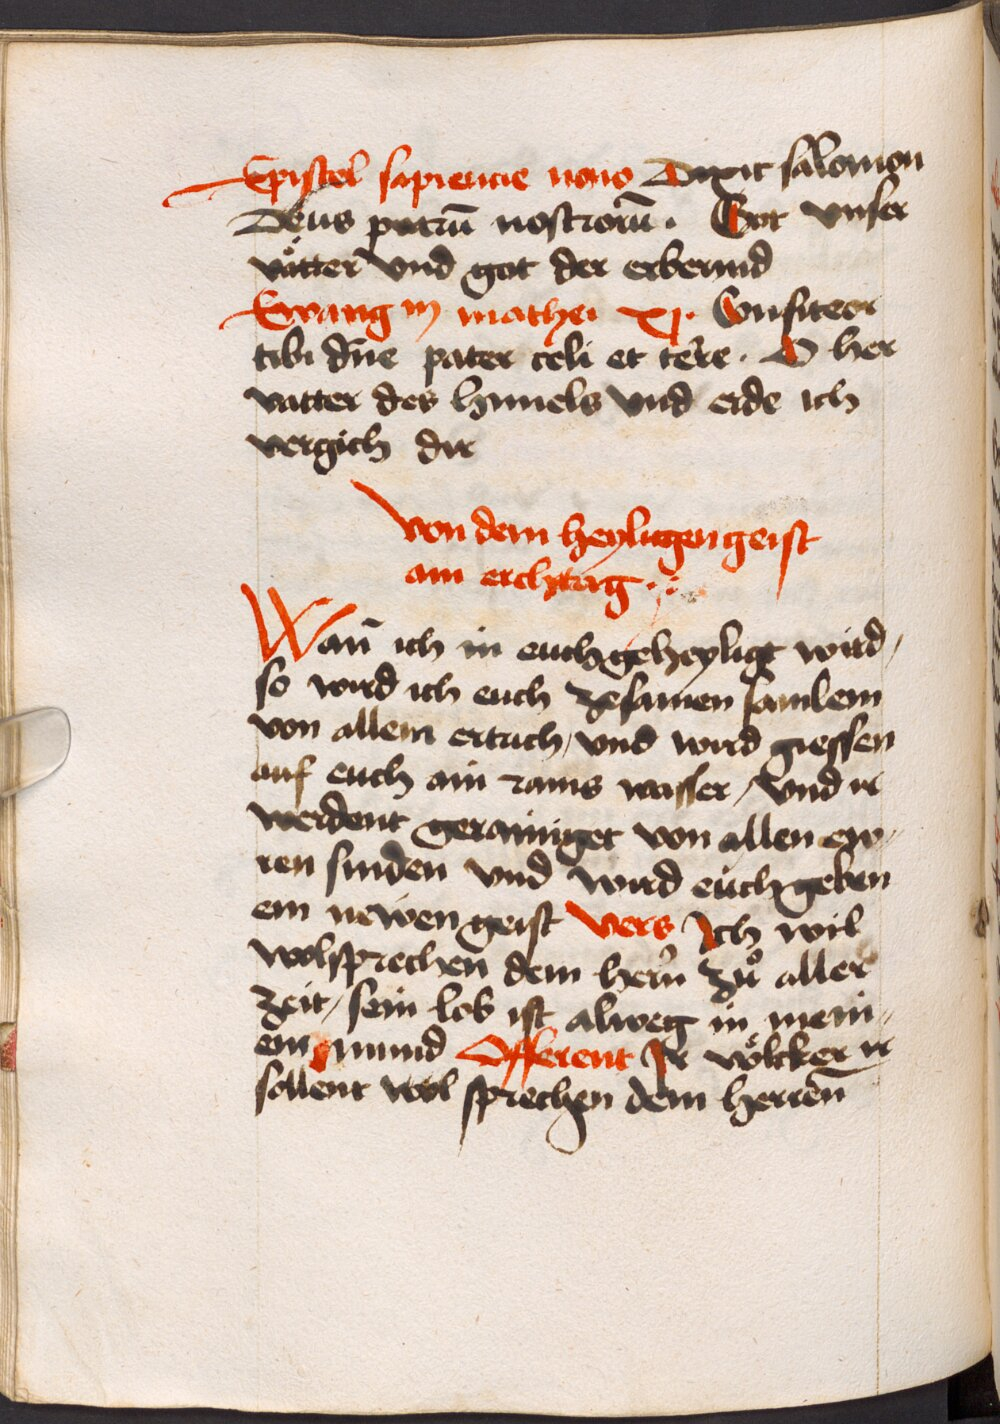 Epistel sapiencie nono Dixit salomon
Deus patrū nostrorū. Got vnser
vätter vnd got der erbermd
Ewang m mathei xj. Confiteor
tibi dn̄e pater celi et terre. O her
vatter des himels vnd erde ich
vergich dir
von dem heyligen geist
am erchtag
Wan̄ ich in euch geheyligt wird /
so wird ich euch zesamen samlem
von allem ertrich / vnd wird giessen
auf euch ain rains wasser / vnd ir
werdent gerainiget von allen ew-
ren sinden vnd wird euch geben
ein newen geist vers Ich wil
wolsprechen dem hern zů aller
zeit / sein lob ist alweg in mein-
em mund Offerent Ir völcker ir
sollent wol sprechen dem herren